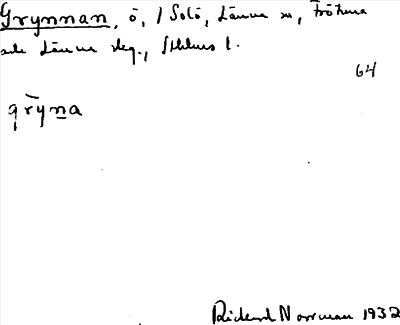 Grynnan, ö, i Solö, Länna sn, Frötuna
och Länna skg., Sthlms l.
64
grȳna
Rickard Norrman 1932